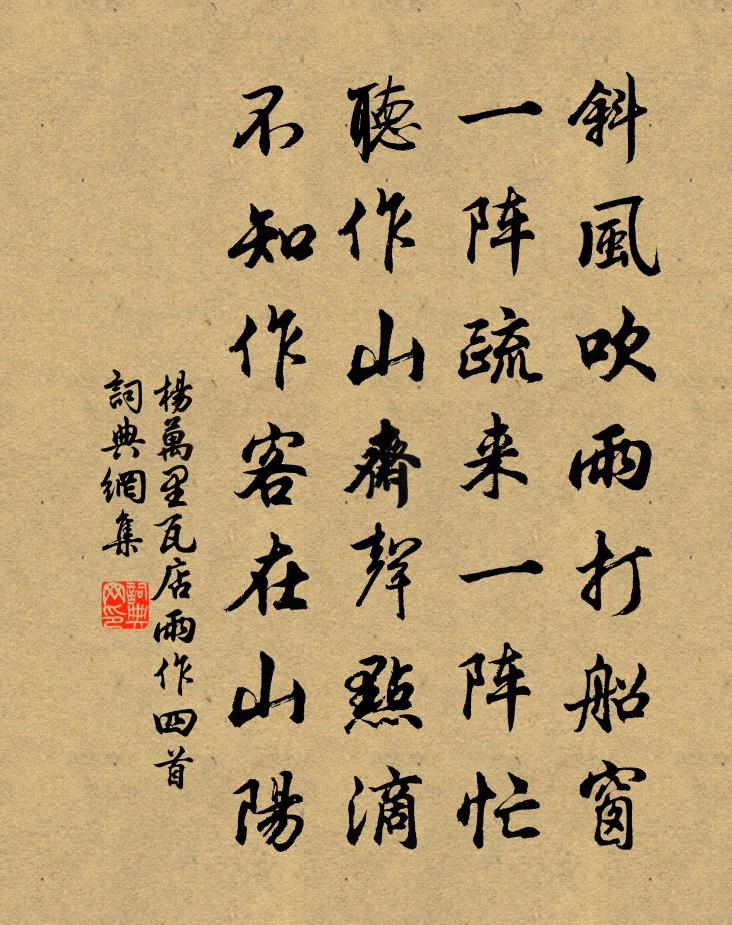 斜風吹雨打船窗
一阵疏来一阵忙
聽作山齋聲點滴
不知作客在山陽
楊萬里瓦店雨作四首
詞典網集
詞典網印